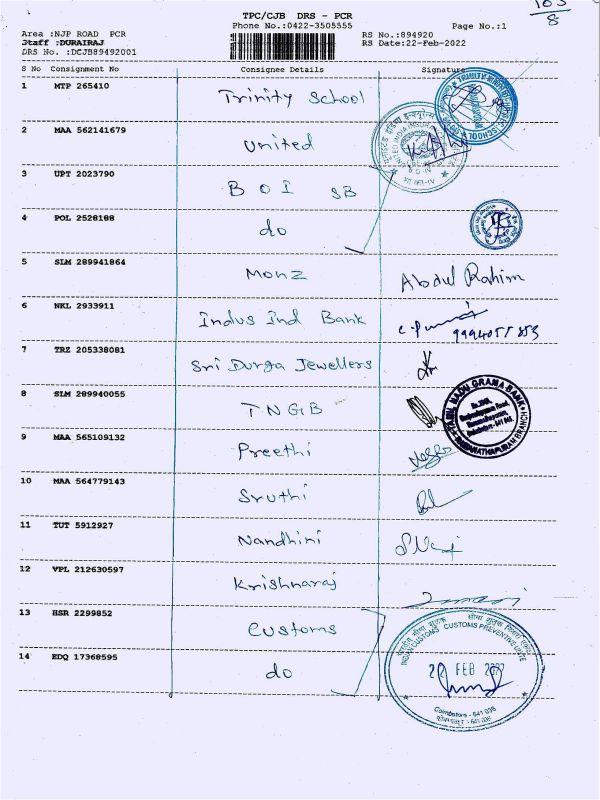 TPC/CJB DRS - PCR
Phone No.:0422-3505555
Page No.:1
8
Area :NJP ROAD PCR
RS No.:894920
Staff :DURAIRAJ
RS Date:22-Feb-2022
DRS No. :DCJB89492001
S No Consignment No Consignee Details Signature
1 MTP 265410 Trinity School
2 MAA 562141679 United
3 UPT 2023790 BOI SB
4 POL 2528188 do
5 SLM 289941864 Monz Abdul Rahim
6 NKL 2933911 Indus Ind Bank
7 TRZ 205338081 Sri Durga Jewellers
8 SLM 289940055 TNGB
TAMIL NADU GRAMA BANK
9 MAA 565109132 Preethi
10 MAA 564779143 Sruthi
11 TUT 5912927 Nandhini
12 VPL 212630597 Krishnaraj
13 HSR 2299852 Customs
INDIAN CUSTOMS CUSTOMS PREVENTIVE UNIT
14 EDQ 17368595 do